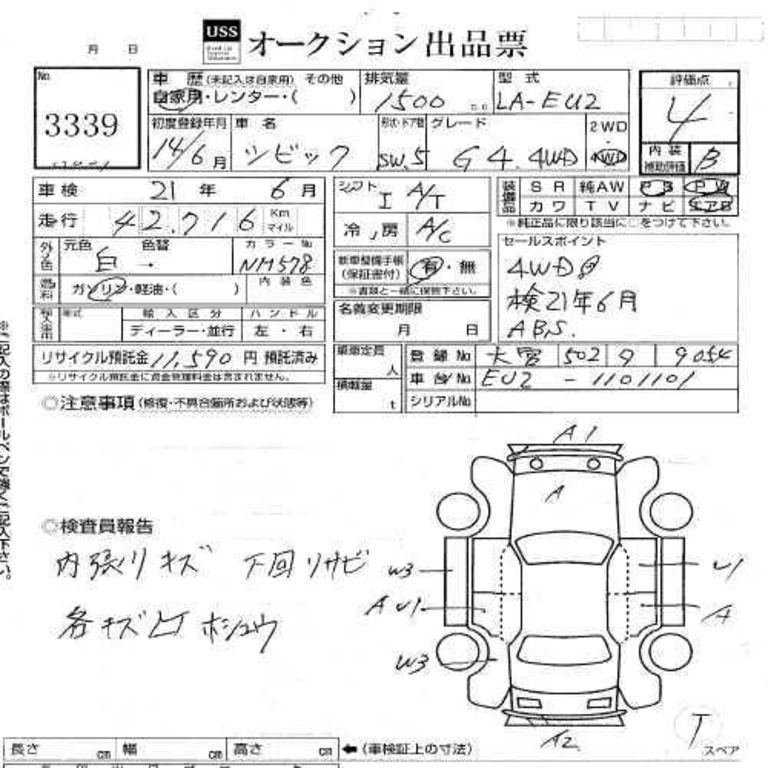 月 日
USS オークション出品票
No
3339
車歴 (未記入は自家用) その他
自家用・レンター・( )
排気量
1500 c.c.
型式
LA-EU2
評価点
4
初度登録年月
14/6月
車名
シビック
形状・ドア数
SW.5
グレード
G 4.4WD
2WD
4WD
内装
補助評価
B
車検 21年 6月
シフト I A/T
装備品 SR 純AW PS PW
カワ TV ナビ エアB
走行 42,716 Km マイル
冷房 A/C
※純正品に限り該当に○をつけて下さい。
外色 元色 白 色替 ・ カラーNo NH578
新車整備手帳
(保証書付) 有・無
※書類と一緒に保管下さい。
セールスポイント
4WD
検21年6月
ABS.
燃料 ガソリン・軽油・( ) 内装色
輸入車用 年式 輸入区分 ハンドル
ディーラー・並行 左・右
名義変更期限
月 日
リサイクル預託金 11,590 円 預託済み
※リサイクル預託金に資金管理料金は含まれません。
乗車定員 人
登録No 大宮 502 9054
積載量 t
車台No EU2 - 1101101
シリアルNo
○注意事項 (修復・不具合箇所および状態等)
A1
A
○検査員報告
内張りキズ 下回りサビ
各キズ凹ホシュウ
W3
U1
A U1
A
W3
A2
T
スペア
長さ cm 幅 cm 高さ cm ←(車検証上の寸法)